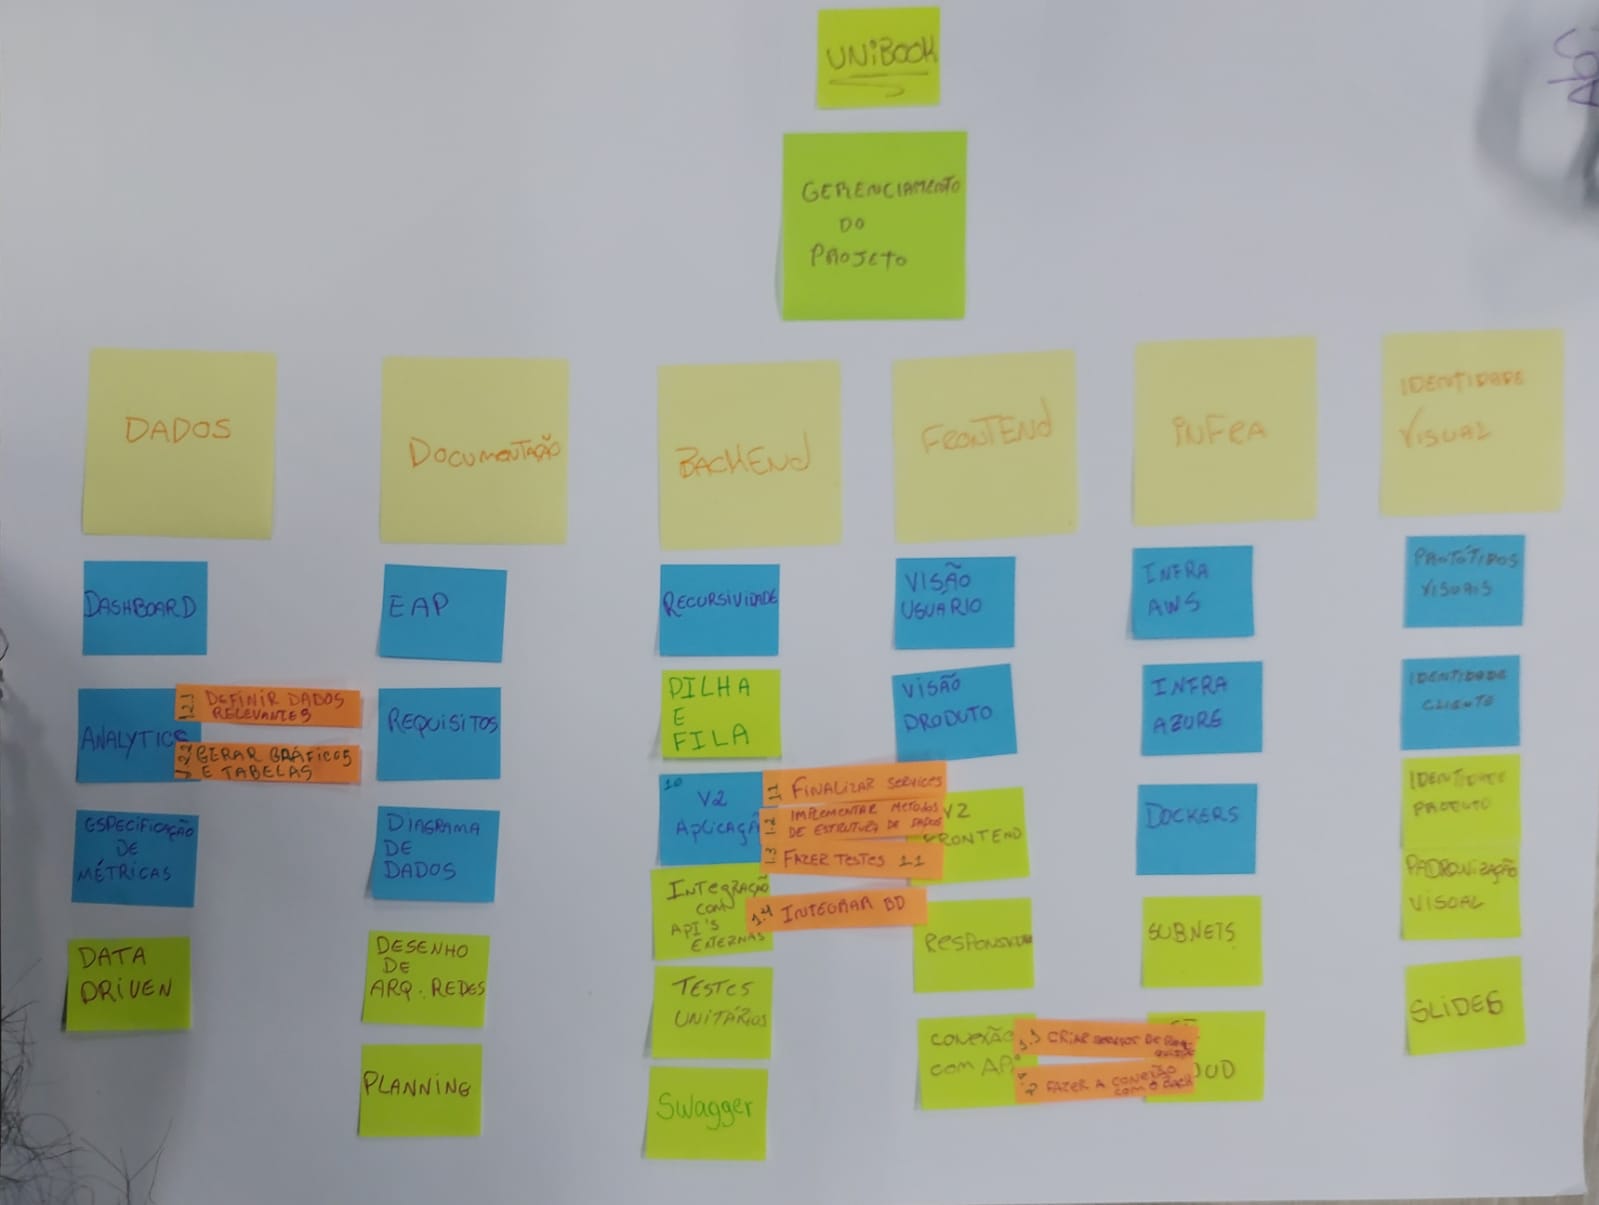 UNIBOOK
GERENCIAMENTO
DO
PROJETO
DADOS
DASHBOARD
ANALYTICS
1.2.1 DEFINIR DADOS
RELEVANTES
GERAR GRÁFICOS
E TABELAS
ESPECIFICAÇÃO
DE
MÉTRICAS
DATA
DRIVEN
DOCUMENTAÇÃO
EAP
REQUISITOS
DIAGRAMA
DE
DADOS
DESENHO
DE
ARQ. REDES
PLANNING
BACKEND
RECURSIVIDADE
PILHA
E
FILA
10
V2
APLICAÇÃ
1.1 FINALIZAR SERVICES
1.2 IMPLEMENTAR METODOS
DE ESTRUTURA DE DADOS
1.3 FAZER TESTES 1.1
1.4 INTEGRAR BD
INTEGRAÇÃO
COM
API'S
EXTERNAS
TESTES
UNITÁRIOS
Swagger
FRONTEND
VISÃO
USUÁRIO
VISÃO
PRODUTO
V2
FRONTEND
CONEXÃO
COM API
CRIAR DE
FAZER A CONEXÃO
COM O BACK
INFRA
INFRA
AWS
INFRA
AZURE
DOCKERS
SUBNETS
OUD
IDENTIDADE
VISUAL
PROTÓTIPOS
VISUAIS
IDENTIDADE
CLIENTE
IDENTIDADE
PADRONIZAÇÃO
VISUAL
SLIDES